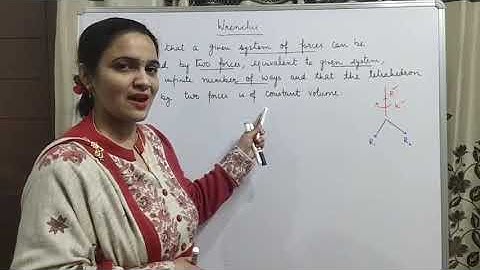 Wrenches
that a given system of forces can be
by two forces, equivalent to given system,
infinite number of ways and that the tetrahedron
two forces is of constant volume.
R
K
R₁
R₂